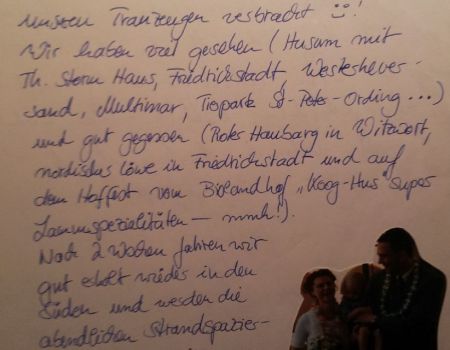 unseren Trauzeugen verbracht !
Wir haben viel gesehen (Husum mit
Th. Storm Haus, Friedrichstadt, Westerhever-
sand, Multimar, Tierpark St-Peter-Ording ...)
und gut gegessen (Roter Haubarg in Witzwort,
nordischer Löwe in Friedrichstadt und auf
dem Hoffest vom Biolandhof "Koog-Hus" super
Lammspezialitäten — mmh!).
Nach 2 Wochen fahren wir
gut erholt wieder in den
Süden und werden die
abendlichen Strandspazier-